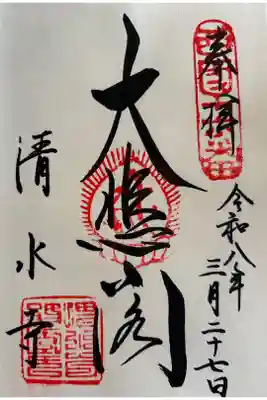 奉拝
令和八年
三月二十七日
大悲閣
清水寺